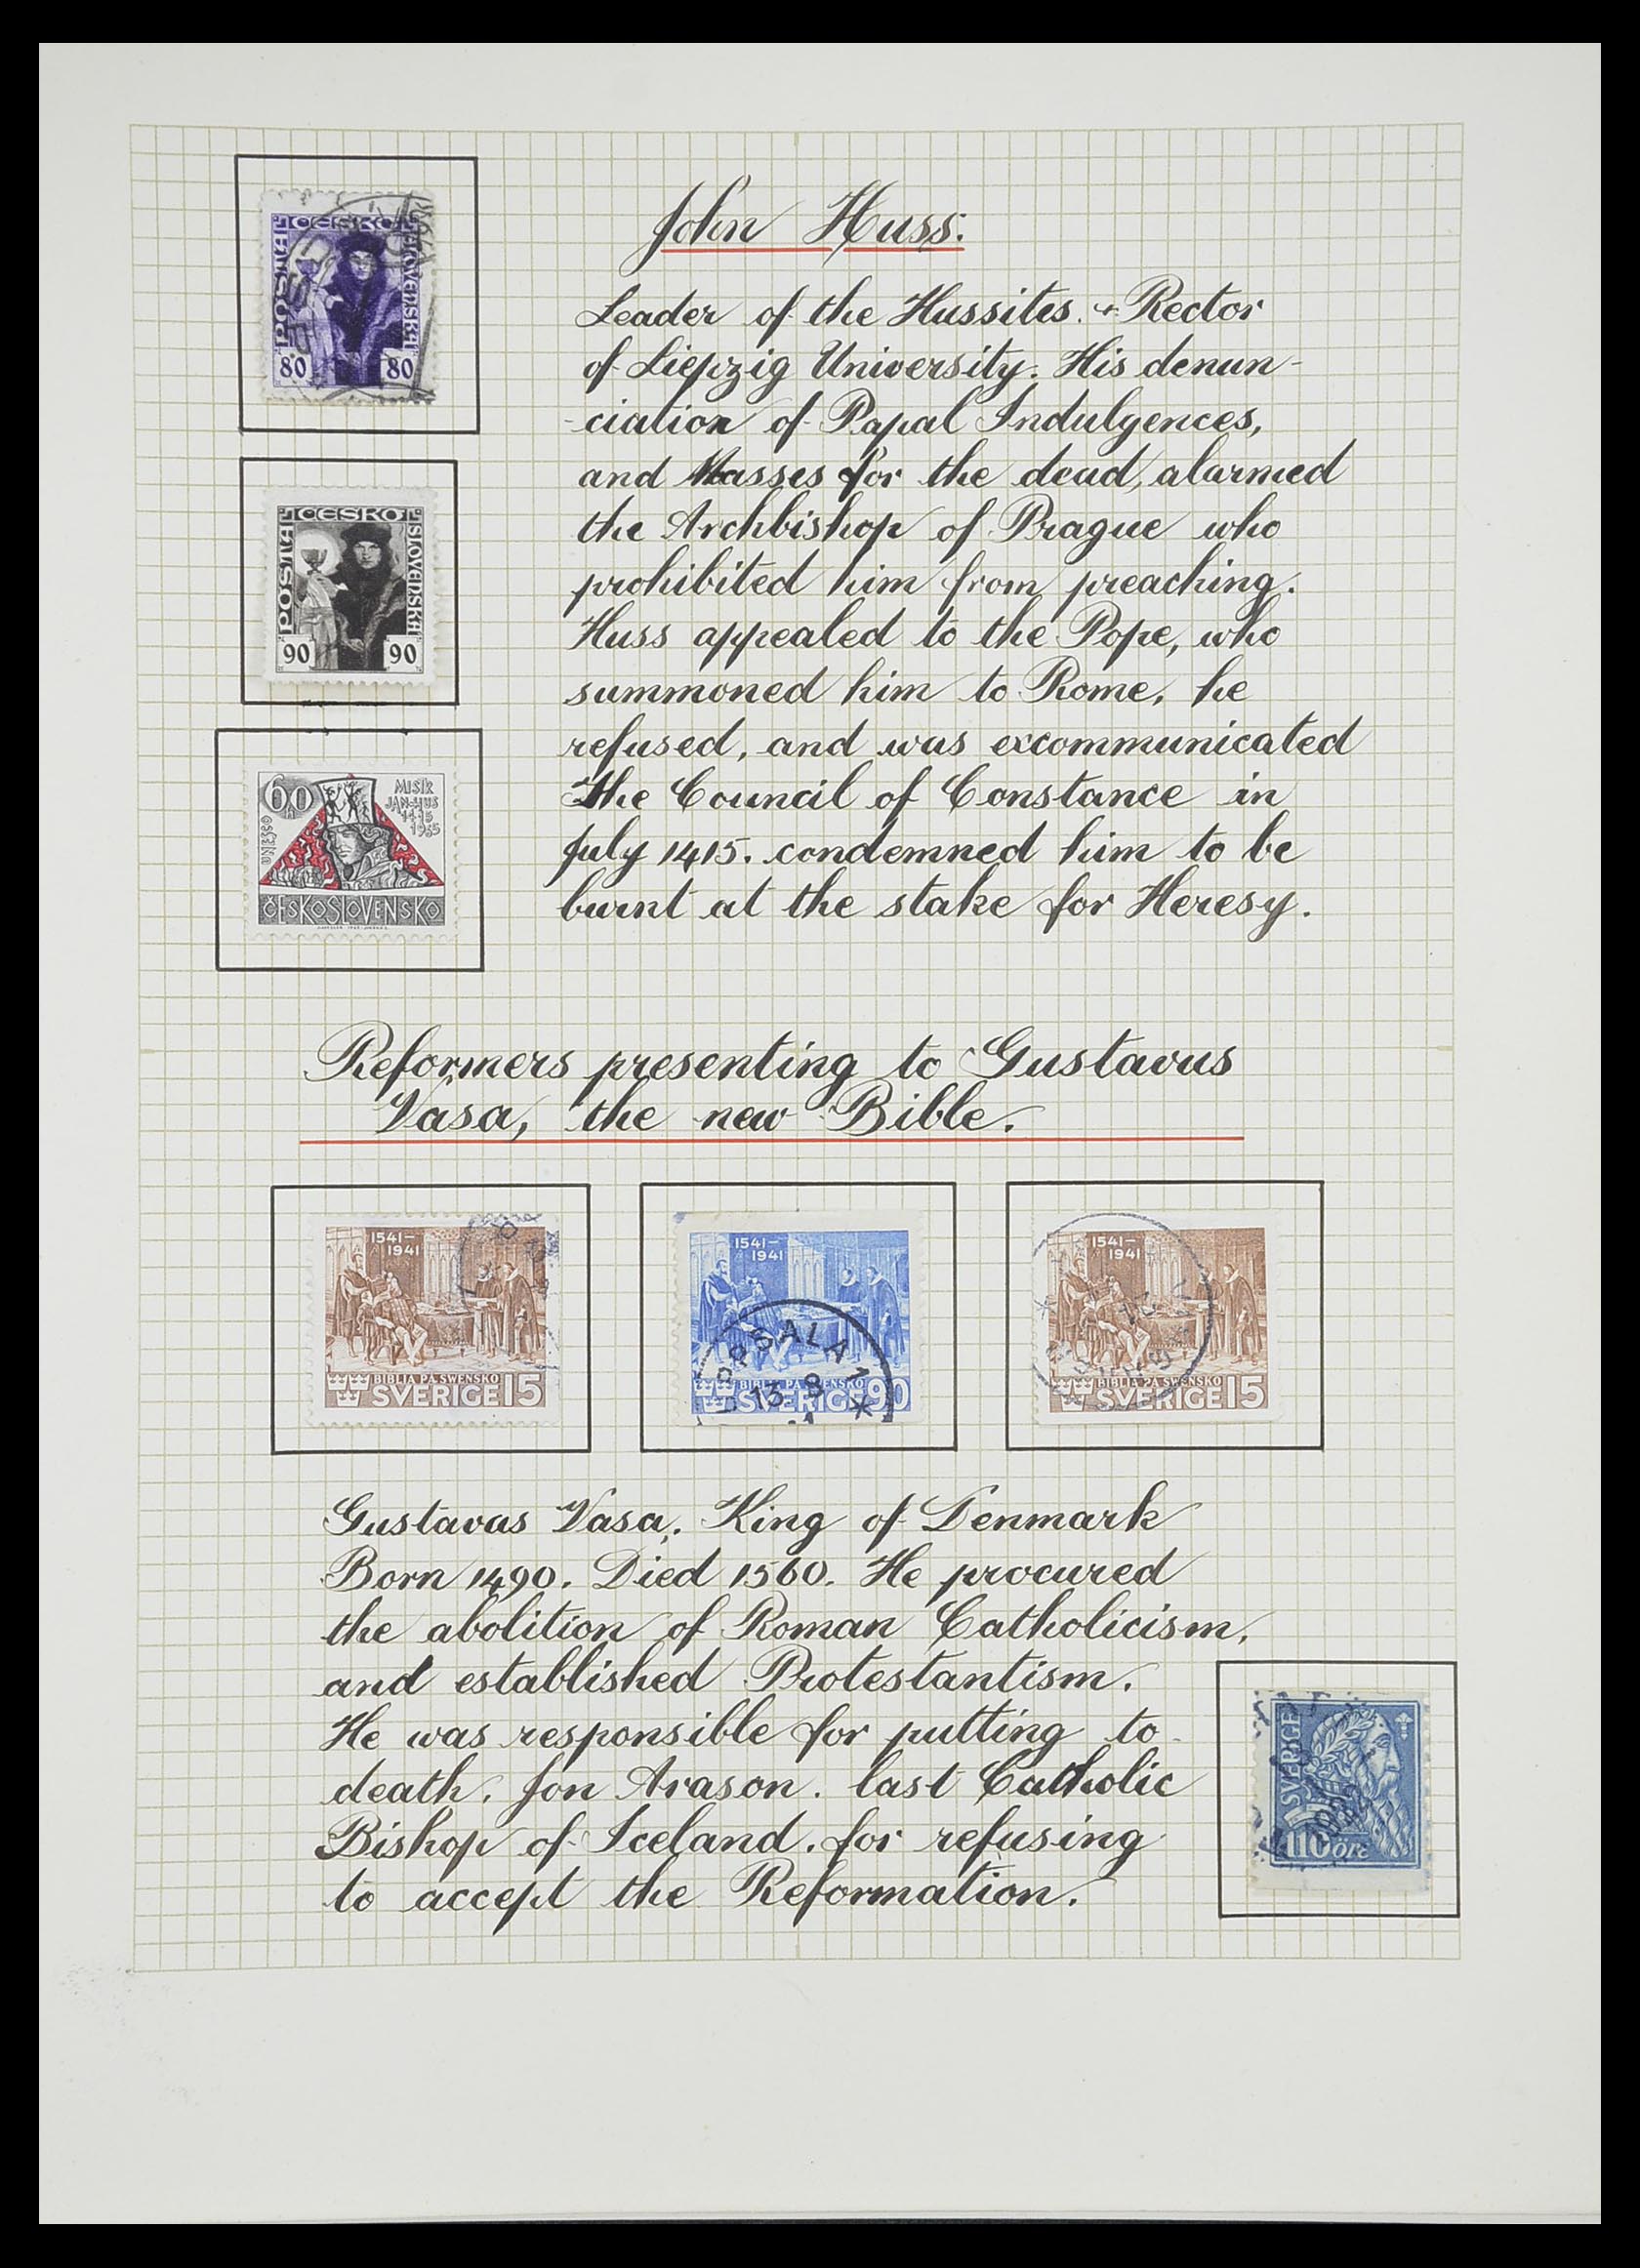 John Huss.
Leader of the Hussites. + Rector
of Liepzig University. His denun-
-ciation of Papal Indulgences,
and Masses for the dead, alarmed
the Archbishop of Prague who
prohibited him from preaching.
Huss appealed to the Pope, who
summoned him to Rome, he
refused, and was excommunicated
The Council of Constance in
July 1415. condemned him to be
burnt at the stake for Heresy.
POSTA
ČESKO
SLOVENSKÁ
80 80
POSTA
ČESKO
SLOVENSKÁ
90 90
60
UNESCO
MISTR
JAN HUS
1415
1965
ČESKOSLOVENSKO
Reformers presenting to Gustavus
Vasa, the new Bible.
1541-
1941
BIBLIA PÅ SWENSKO
SVERIGE 15
1541-
1941
BIBLIA PÅ SWENSKO
SVERIGE 90
UPPSALA 1
13 8
1541-
1941
BIBLIA PÅ SWENSKO
SVERIGE 15
Gustavas Vasa. King of Denmark
Born 1490. Died 1560. He procured
the abolition of Roman Catholicism.
and established Protestantism.
He was responsible for putting to
death. Jon Arason. last Catholic
Bishop of Iceland. for refusing
to accept the Reformation.
SVERIGE
110 ÖRE